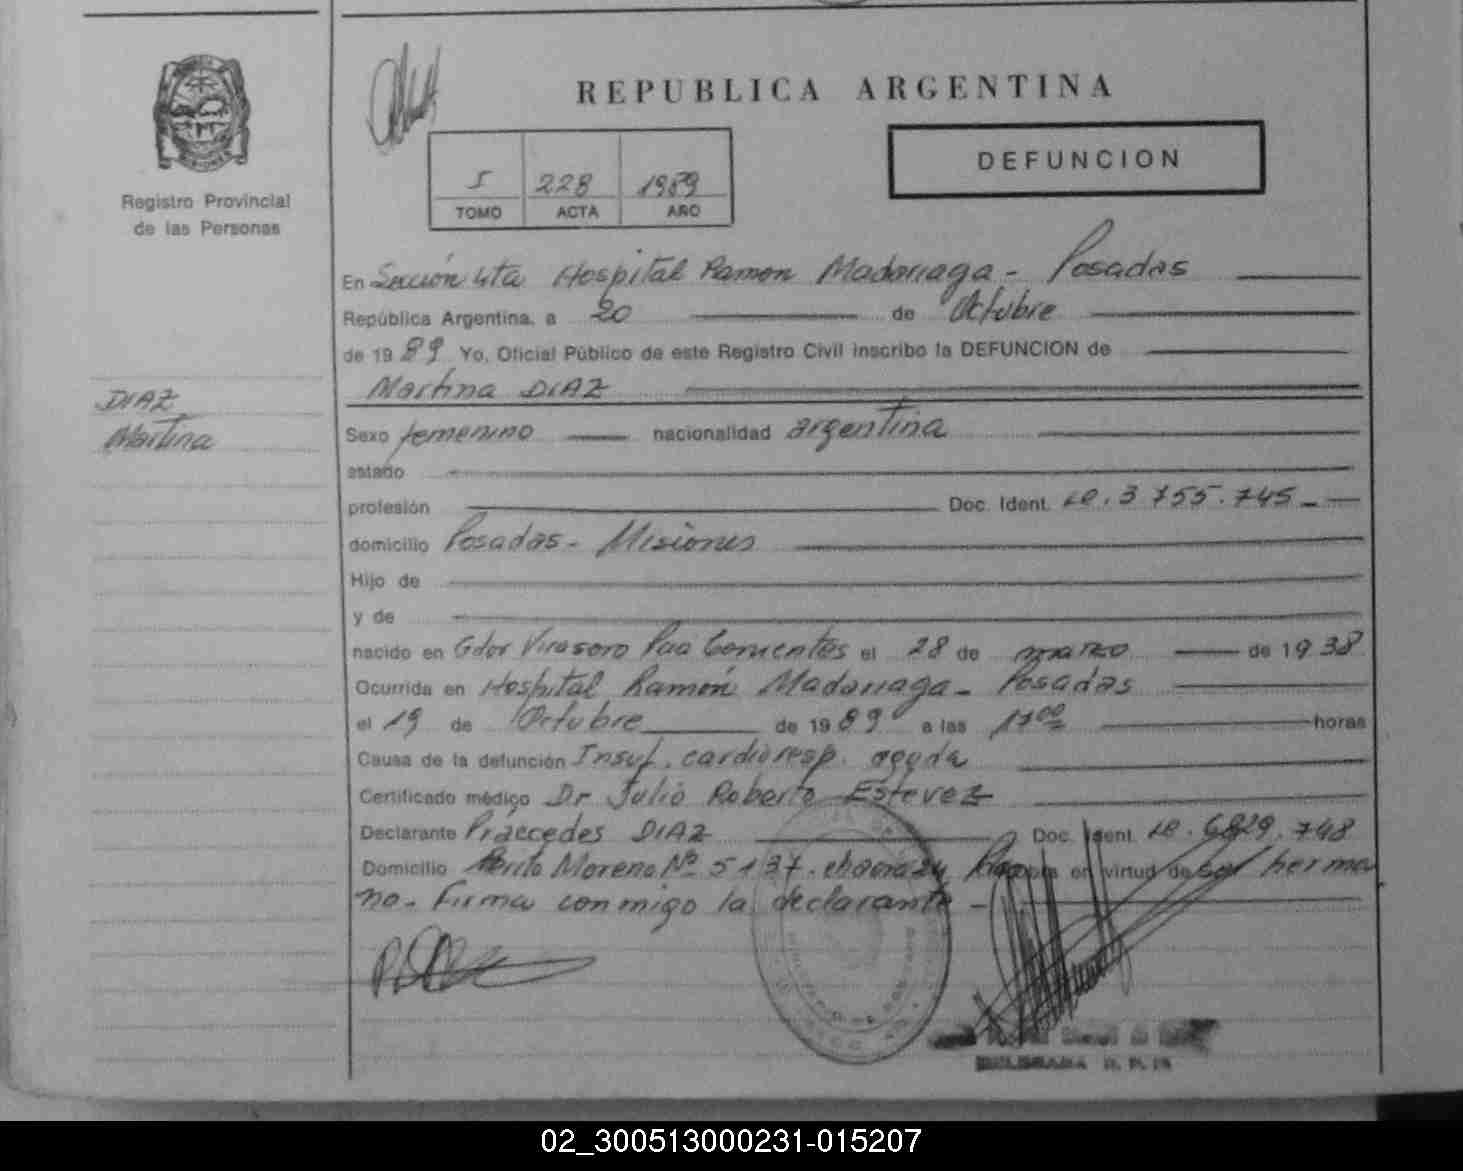 REPUBLICA ARGENTINA
DEFUNCION
I 228 1989
TOMO ACTA AÑO
Registro Provincial
de las Personas
DIAZ
Martina
En Sección 4ta Hospital Ramon Madariaga - Posadas
República Argentina, a 20 de Octubre
de 1989 Yo, Oficial Público de este Registro Civil inscribo la DEFUNCION de
Martina DIAZ
Sexo femenino nacionalidad argentina
estado
profesión Doc. Ident. 3.755.745
domicilio Posadas - Misiones
Hijo de
y de
nacido en Gdor Virasoro Pcia Corrientes el 28 de marzo de 1938
Ocurrida en Hospital Ramón Madariaga - Posadas
el 19 de Octubre de 1989 a las 17 00 horas
Causa de la defunción Insuf. cardioresp. aguda
Certificado médico Dr Julio Roberto Estevez
Declarante Práecedes DIAZ Doc. Ident. 6829.748
Domicilio Perito Moreno Nº 5137 en virtud de ser herma
no. Firma conmigo la declarante -
02_300513000231-015207